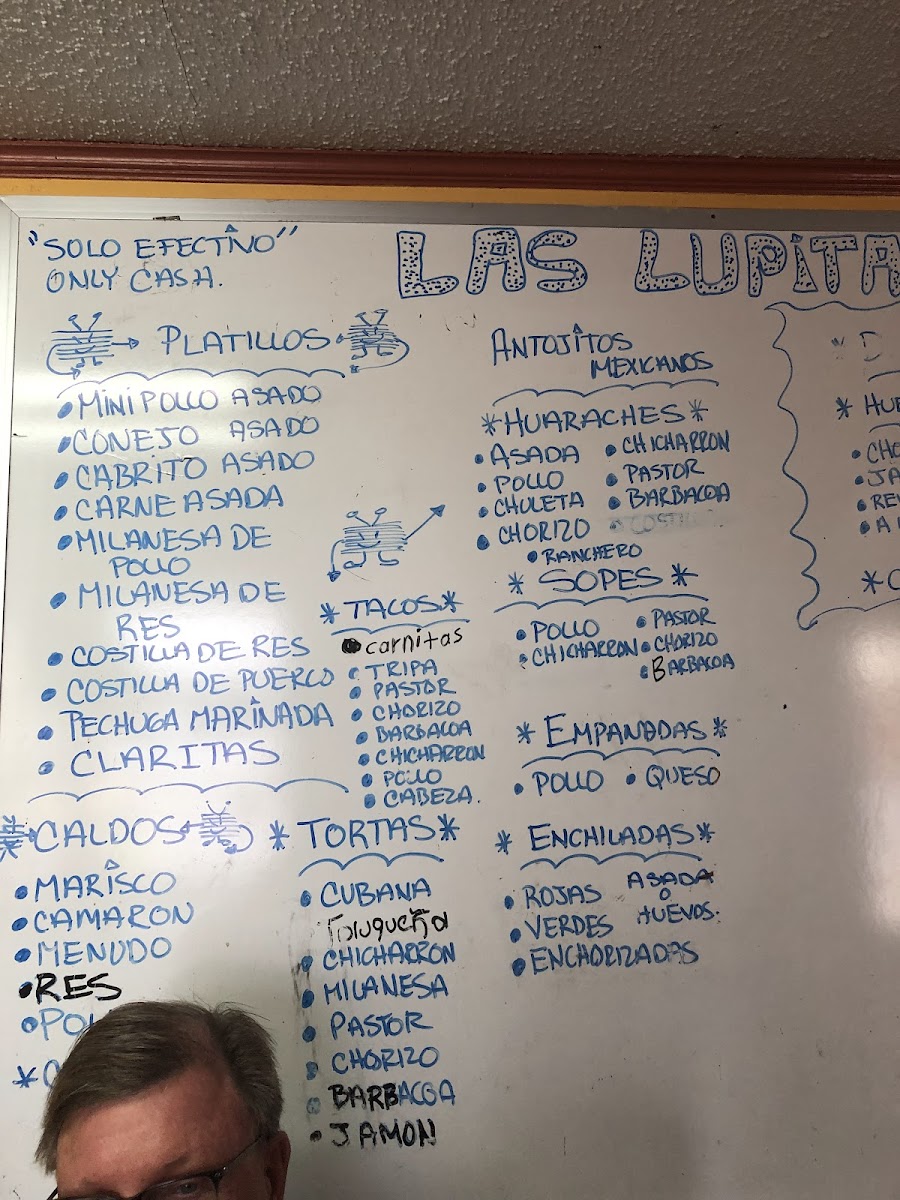 "SOLO EFECTIVO"
ONLY CASH.
LAS LUPITA
PLATILLOS
• MINI POLLO ASADO
• CONEJO ASADO
• CABRITO ASADO
• CARNE ASADA
• MILANESA DE
POLLO
• MILANESA DE
RES
• COSTILLA DE RES
• COSTILLA DE PUERCO
• PECHUGA MARINADA
• CLARITAS
CALDOS
• MARISCO
• CAMARON
• MENUDO
• RES
*TACOS*
• carnitas
• TRIPA
• PASTOR
• CHORIZO
• BARBACOA
• CHICHARRON
• POLLO
• CABEZA.
*TORTAS*
• CUBANA
Toluqueña
• CHICHARRON
• MILANESA
• PASTOR
• CHORIZO
• BARBACOA
• JAMON
ANTOJITOS
MEXICANOS
*HUARACHES*
• ASADA • CHICHARRON
• POLLO • PASTOR
• CHULETA • BARBACOA
• CHORIZO
• RANCHERO
* SOPES *
• POLLO • PASTOR
• CHICHARRON • CHORIZO
• BARBACOA
* EMPANADAS *
• POLLO • QUESO
* ENCHILADAS *
• ROJAS ASADA
O
• VERDES HUEVOS.
• ENCHORIZADAS